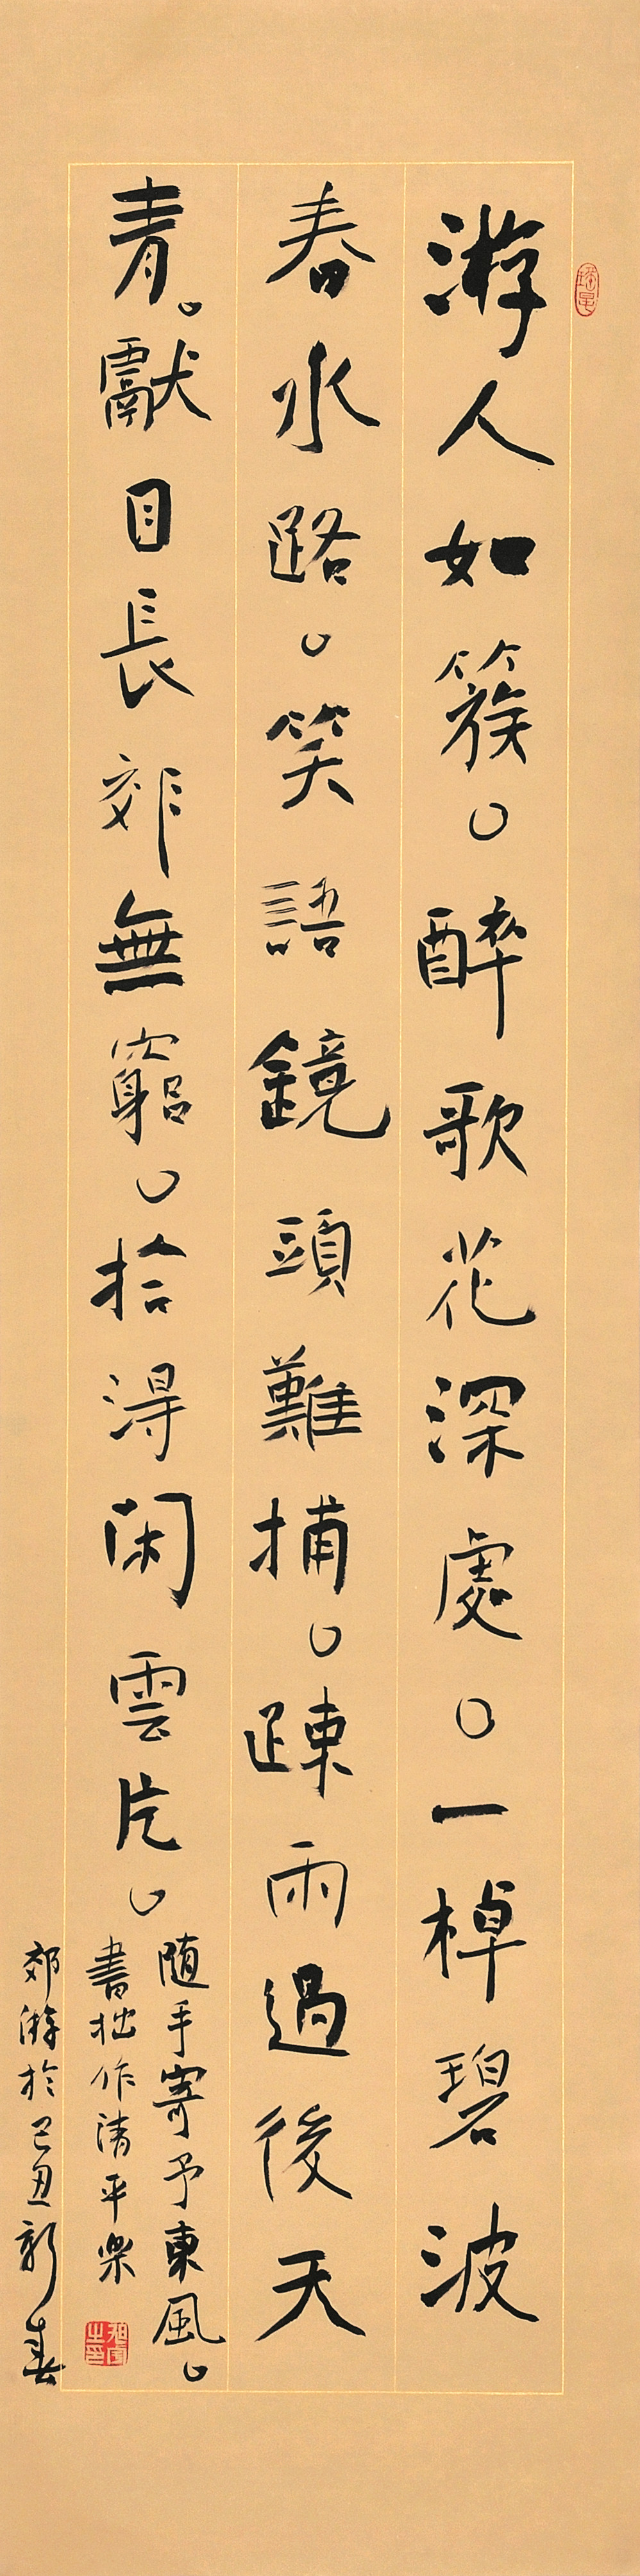 游人如簇。醉歌花深處。一棹碧波
春水路。笑語鏡頭難捕。疎雨過後天
青。獻目長郊無窮。拾得閑雲片。
随手寄予東風。
書拙作清平樂
郊游於己丑新春